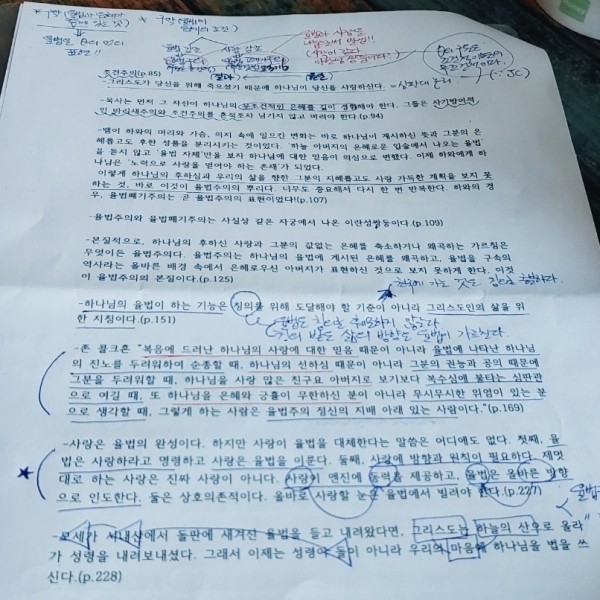 율법 강조 사랑 강조
조건주의(p.85)
-그리스도가 당신을 위해 죽으셨기 때문에 하나님이 당신을 사랑하신다.
-목사는 먼저 그 자신이 하나님의 무조건적인 은혜를 깊이 경험해야 한다. 그들은 자기 방어적
인 바리새주의와 조건주의를 흔적조차 남기지 않고 버려야 한다(p.94)
-뱀이 하와의 머리와 가슴, 의지 속에 일으킨 변화는 바로 하나님이 계시하신 뜻과 그분의 은
혜롭고도 후한 성품을 분리시키는 것이었다. '하늘 아버지의 은혜로운 입술에서 나오는 율법'
을 듣지 않고 '율법 자체'만을 보자 하나님에 대한 믿음이 의심으로 변했다. 이제 하와에게 하
나님은 '노력으로 사랑을 얻어야 하는 존재'가 되었다.
이렇게 하나님의 후하심과 우리의 삶을 향한 그분의 지혜롭고도 사랑 가득한 계획을 보지 못
하는 것, 바로 이것이 율법주의의 뿌리다. 너무도 중요해서 다시 한 번 반복한다. 하와의 경
우, 율법폐기주의는 곧 율법주의의 표현이었다!(p.107)
-율법주의와 율법폐기주의는 사실상 같은 자궁에서 나온 이란성쌍둥이다.(p.109)
-본질적으로, 하나님의 후하신 사랑과 그분의 값없는 은혜를 축소하거나 왜곡하는 가르침은
무엇이든 율법주의다. 율법주의는 하나님의 율법에 계시된 은혜를 왜곡하고, 율법을 구속의
역사라는 올바른 배경 속에서 은혜로우신 아버지가 표현하신 것으로 보지 못하게 한다. 이것
이 율법주의의 본질이다.(p.125)
-하나님의 율법이 하는 기능은 칭의를 위해 도달해야 할 기준이 아니라 그리스도인의 삶을 위
한 지침이다.(p.151)
-존 콜크훈 "복음에 드러난 하나님의 사랑에 대한 믿음 때문이 아니라 율법에 나타난 하나님
의 진노를 두려워하여 순종할 때, 하나님의 선하심 때문이 아니라 그분의 권능과 공의 때문에
그분을 두려워할 때, 하나님을 사랑 많은 친구요 아버지로 보기보다 복수심에 불타는 심판관
으로 여길 때, 또 하나님을 은혜와 긍휼이 무한하신 분이 아니라 무시무시한 위엄이 있는 분
으로 생각할 때, 그렇게 하는 사람은 율법주의 정신의 지배 아래 있는 사람이다."(p.169)
-사랑은 율법의 완성이다. 하지만 사랑이 율법을 대체한다는 말씀은 어디에도 없다. 첫째, 율
법은 사랑하라고 명령하고 사랑은 율법을 이룬다. 둘째, 사랑에 방향과 원칙이 필요하다. 제멋
대로 하는 사랑은 진짜 사랑이 아니다. 사랑이 엔진에 동력을 제공하고, 율법은 올바른 방향
으로 인도한다. 둘은 상호의존적이다. 올바로 사랑할 눈은 율법에서 빌려야 한다.(p.227)
-모세가 시내산에서 돌판에 새겨진 율법을 들고 내려왔다면, 그리스도는 하늘의 산으로 올라
가 성령을 내려보내셨다. 그래서 이제는 성령이 돌이 아니라 우리의 마음에 하나님을 법을 쓰
신다.(p.228)